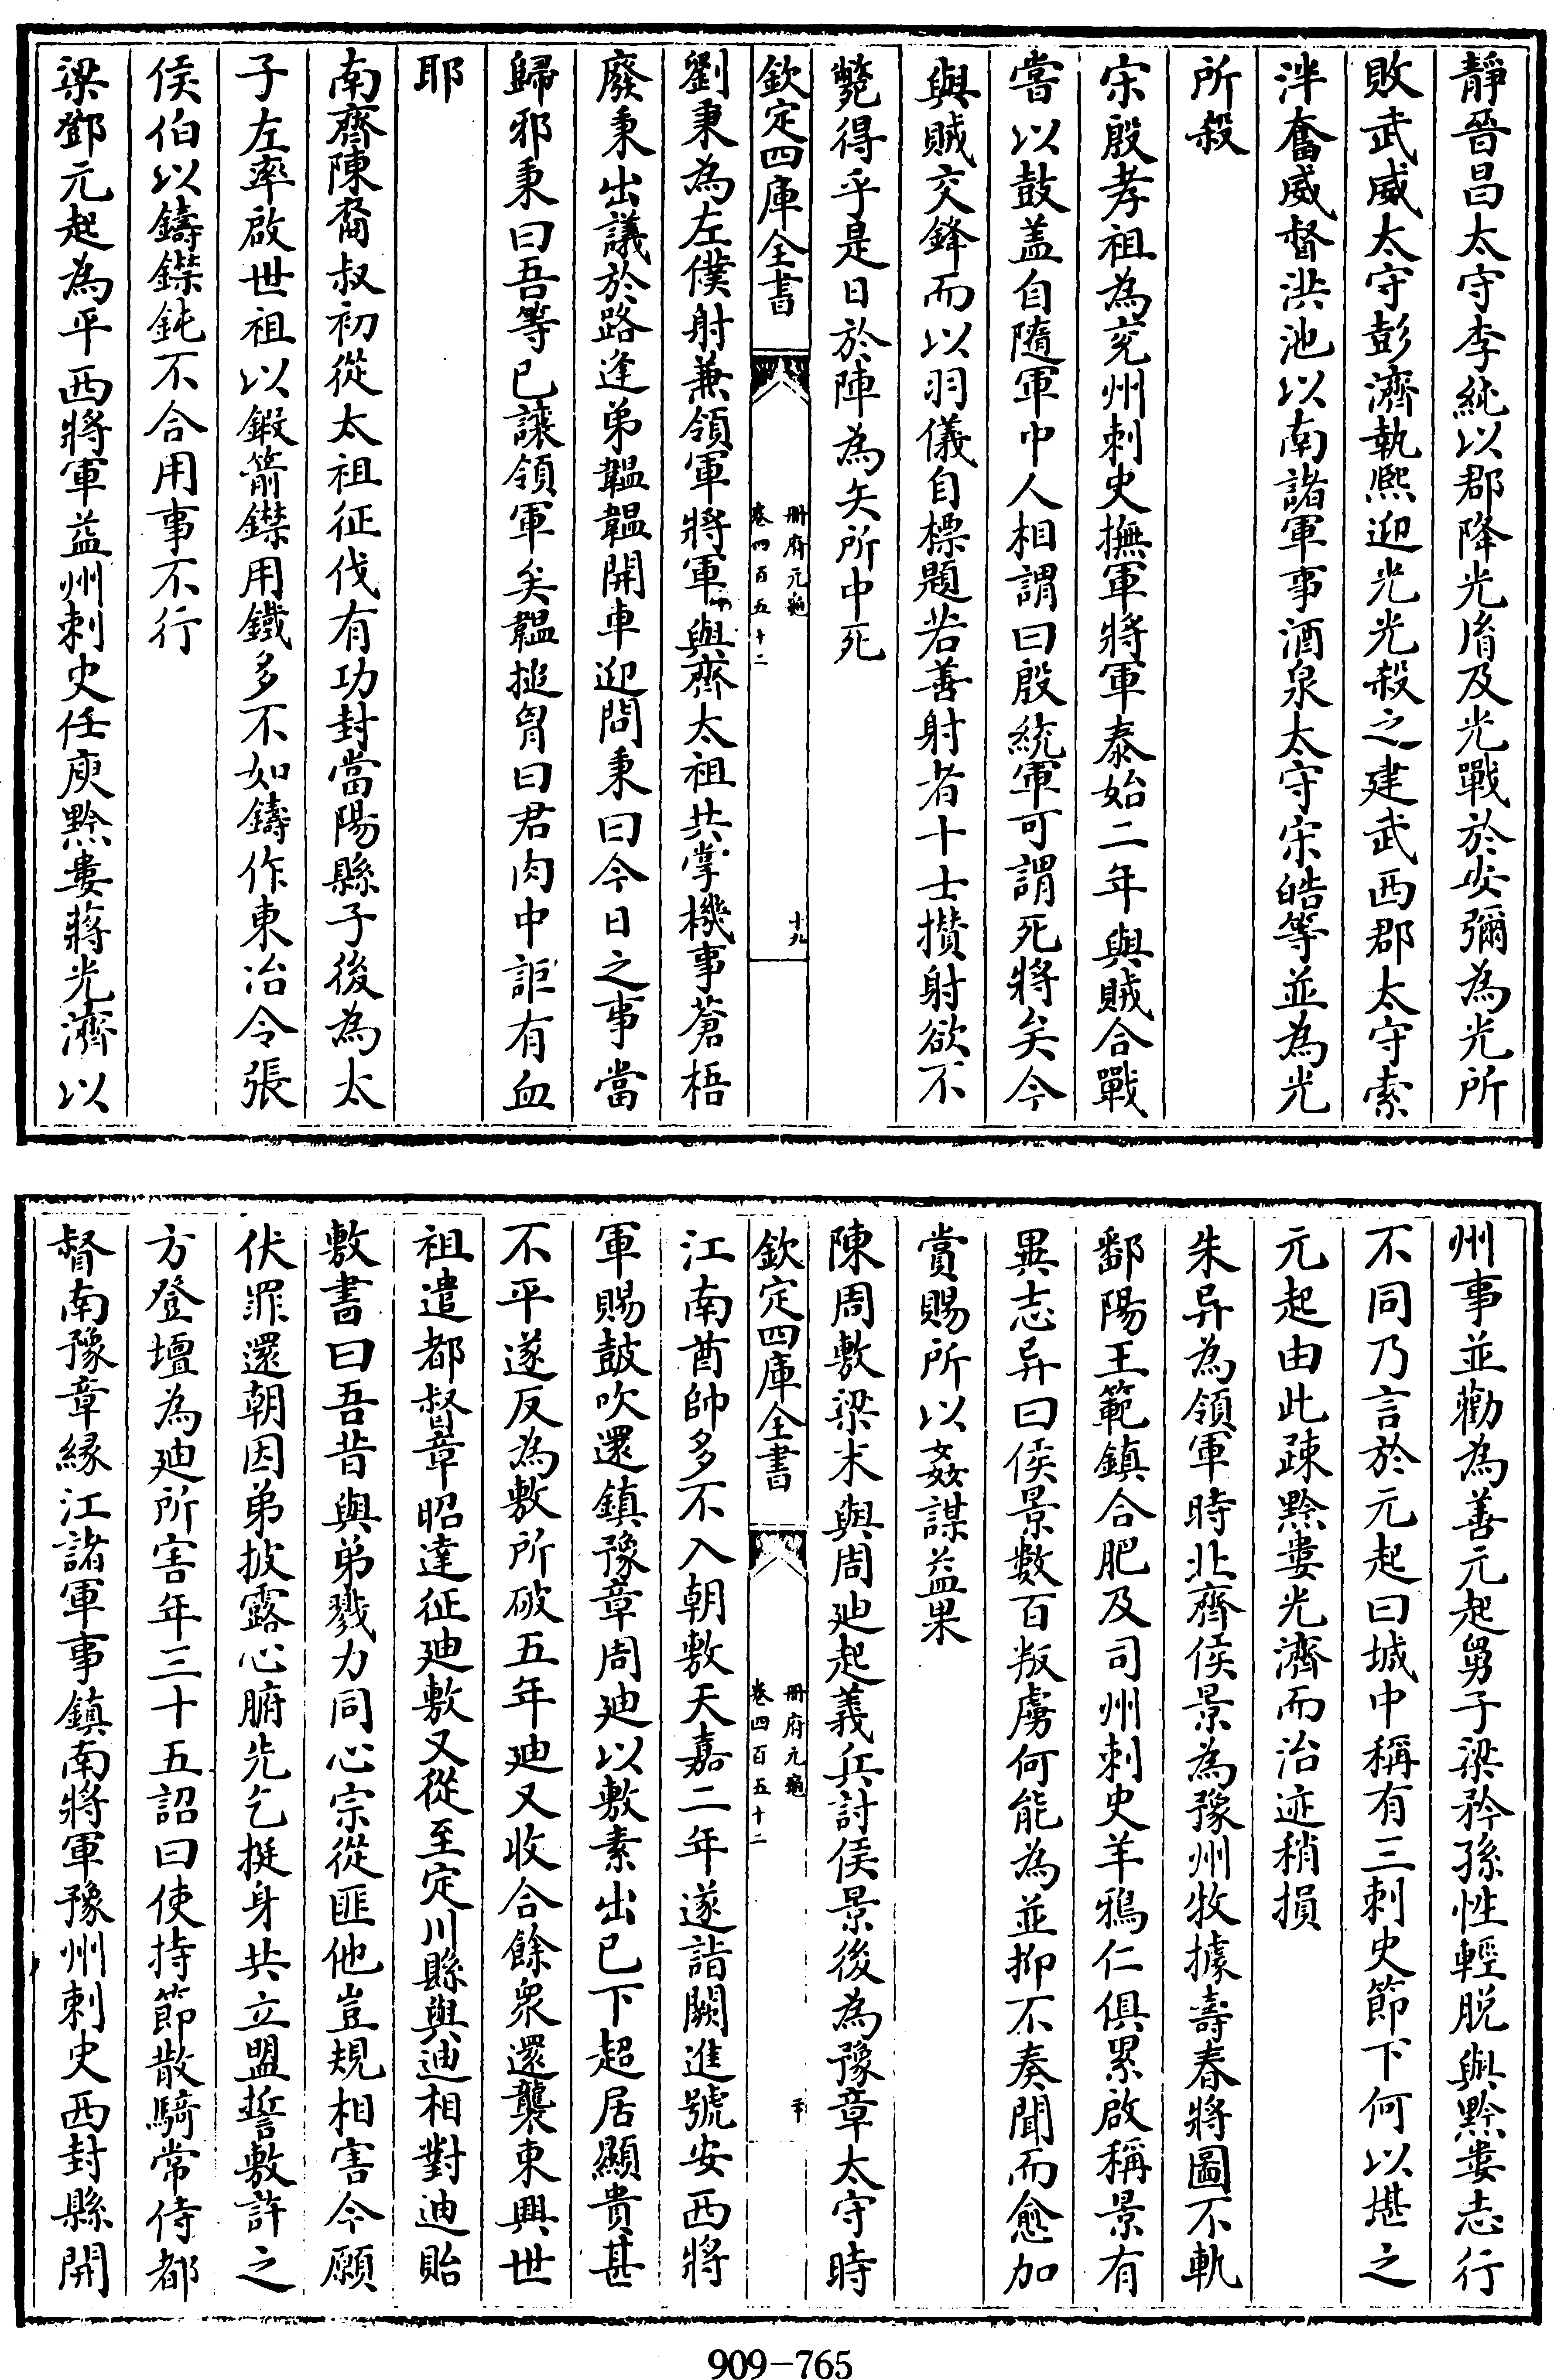 靜晉昌太守李純以郡降光㨗及光戰於安彌為光所
敗武威太守彭濟執熙迎光光殺之建武西郡太守索
泮奮威督洪池以南諸軍事酒泉太守宋皓等並為光
所殺
宋殷孝祖為兖州刺史撫軍將軍泰始二年與賊合戰
嘗以鼓盖自隨軍中人相謂曰殷統軍可謂死將矣今
與賊交鋒而以羽儀自標題若善射者十士攅射欲不
斃得乎是日於陣為矢所中死
欽定四庫全書
冊府元龜
卷四百五十二
十九
劉秉為左僕射兼領軍將軍與齊太祖共掌機事蒼梧
廢秉出議於路逢弟韞韞開車迎問秉曰今日之事當
歸邪秉曰吾等已讓領軍矣韞搥胷曰君肉中詎有血
耶
南齊陳裔叔初從太祖征伐有功封當陽縣子後為太
子左率啟世祖以鍛箭鏃用鐵多不如鑄作東冶令張
侯伯以鑄鏃鈍不合用事不行
梁鄧元起為平西將軍益州刺史任庾黔婁蔣光濟以
州事並勸為善元起舅子梁矜孫性輕脱與黔婁志行
不同乃言於元起曰城中稱有三刺史節下何以堪之
元起由此疎黔婁光濟而治迹稍損
朱异為領軍時北齊侯景為豫州牧據壽春將圖不軌
鄱陽王範鎮合肥及司州刺史羊鴉仁俱累啟稱景有
異志异曰侯景數百叛虜何能為並抑不奏聞而愈加
賞賜所以姦謀益果
陳周敷梁末與周廸起義兵討侯景後為豫章太守時
欽定四庫全書
冊府元龜
卷四百五十二
二十
江南酋帥多不入朝敷天嘉二年遂詣闕進號安西將
軍賜鼓吹還鎮豫章周廸以敷素出已下超居顯貴甚
不平遂反為敷所破五年廸又收合餘衆還襲東興世
祖遣都督章昭達征廸敷又從至定川縣與廸相對廸貽
敷書曰吾昔與弟戮力同心宗從匪他豈規相害今願
伏罪還朝因弟披露心腑先乞挺身共立盟誓敷許之
方登壇為廸所害年三十五詔曰使持節散騎常侍都
督南豫章縁江諸軍事鎮南將軍豫州刺史西封縣開
909-765